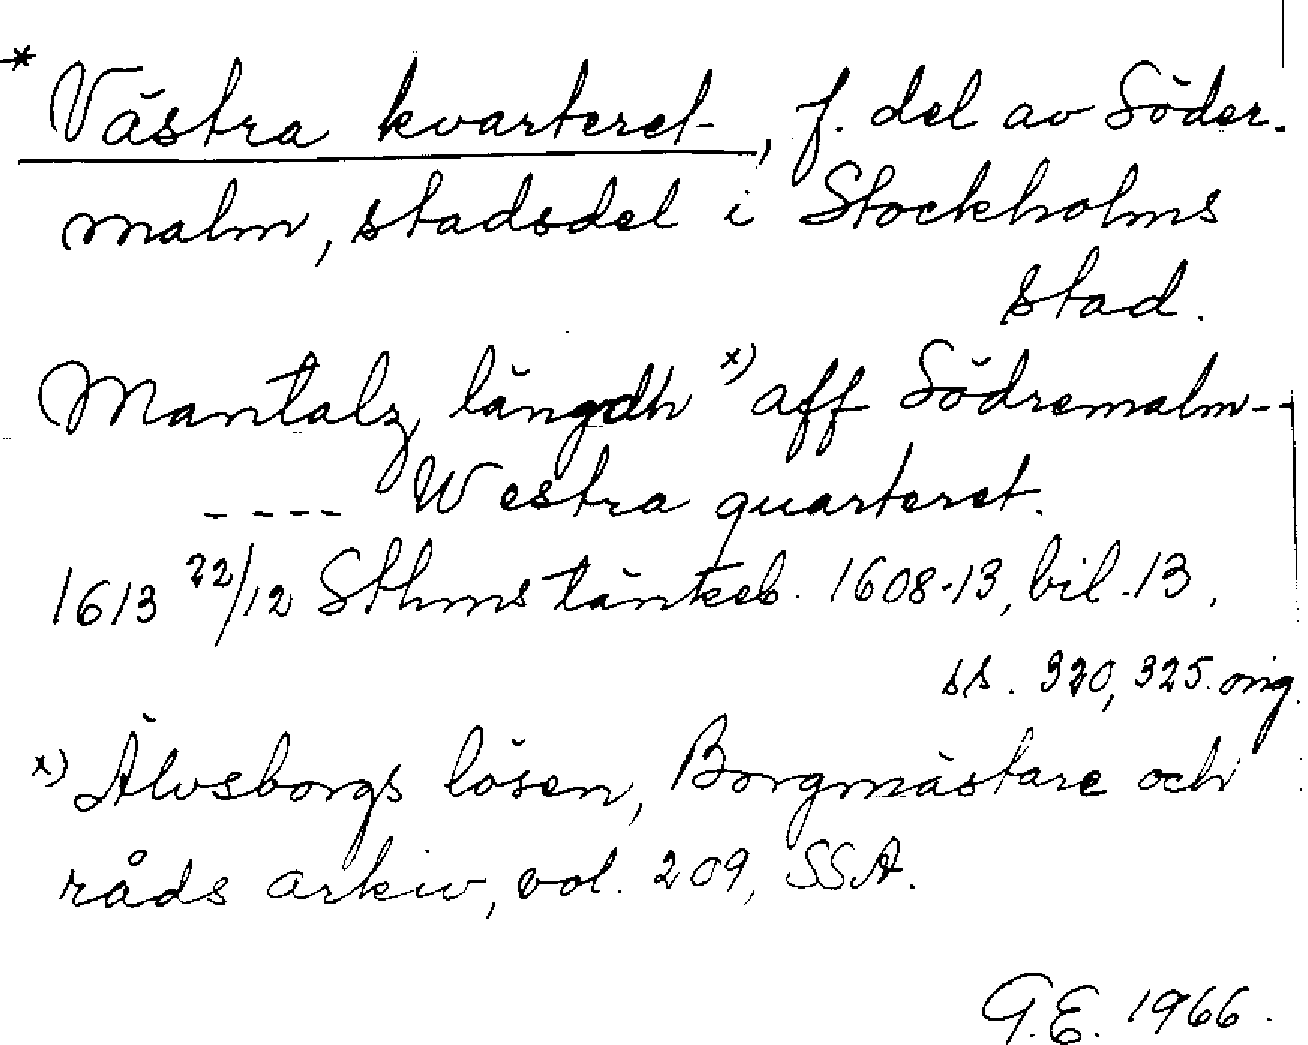 * Västra kvarteret, f. del av Söder-
malm, stadsdel i Stockholms
stad.
Mantalz längdh x) aff Södremalm--
---- Westra quarteret.
1613 22/12 Sthms tänkeb. 1608-13, bil. 13,
ss. 320, 325. orig.
x) Älvsborgs lösen, Borgmästare och
råds arkiv, vol. 209, SSA.
G.E. 1966.